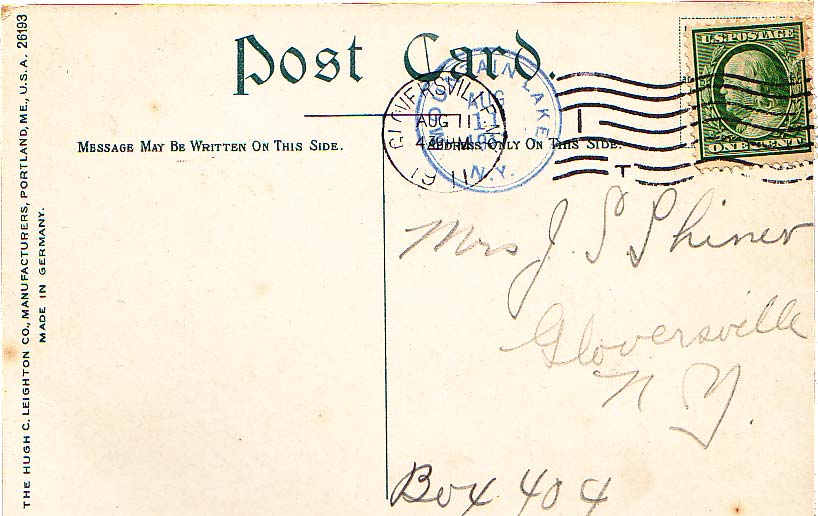 Post Card.
MESSAGE MAY BE WRITTEN ON THIS SIDE.
ADDRESS ONLY ON THIS SIDE.
THE HUGH C. LEIGHTON CO., MANUFACTURERS, PORTLAND, ME., U.S.A. 26193
MADE IN GERMANY.
GLOVERSVILLE N.Y.
AUG 11
1911
MOUNTAIN LAKE
AUG
11
N.Y.
1
T
U.S. POSTAGE
ONE CENT
Mrs J. S Shiner
Gloversville
N Y.
Box 404